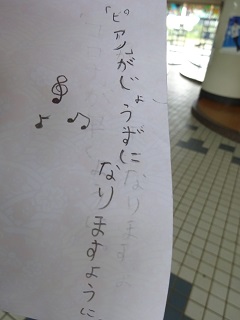 「ピアノがじょうずに
なりますように